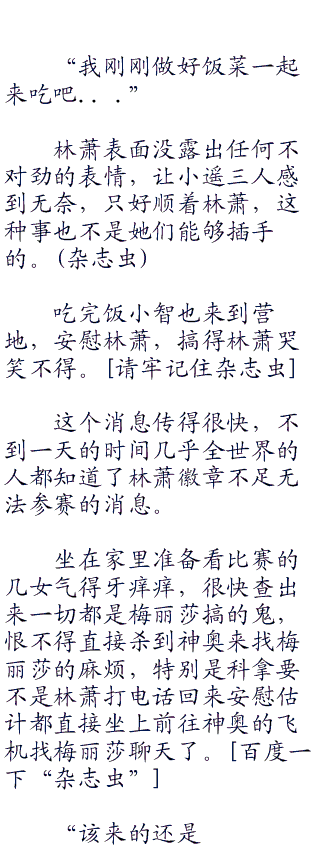 “我刚刚做好饭菜一起
来吃吧. . . .”
林萧表面没露出任何不
对劲的表情，让小遥三人感
到无奈，只好顺着林萧，这
种事也不是她们能够插手
的。(杂志虫)
吃完饭小智也来到营
地，安慰林萧，搞得林萧哭
笑不得。[请牢记住杂志虫]
这个消息传得很快，不
到一天的时间几乎全世界的
人都知道了林萧徽章不足无
法参赛的消息。
坐在家里准备看比赛的
几女气得牙痒痒，很快查出
来一切都是梅丽莎搞的鬼，
恨不得直接杀到神奥来找梅
丽莎的麻烦，特别是科拿要
不是林萧打电话回来安慰估
计都直接坐上前往神奥的飞
机找梅丽莎聊天了。[百度一
下“杂志虫”]
“该来的还是